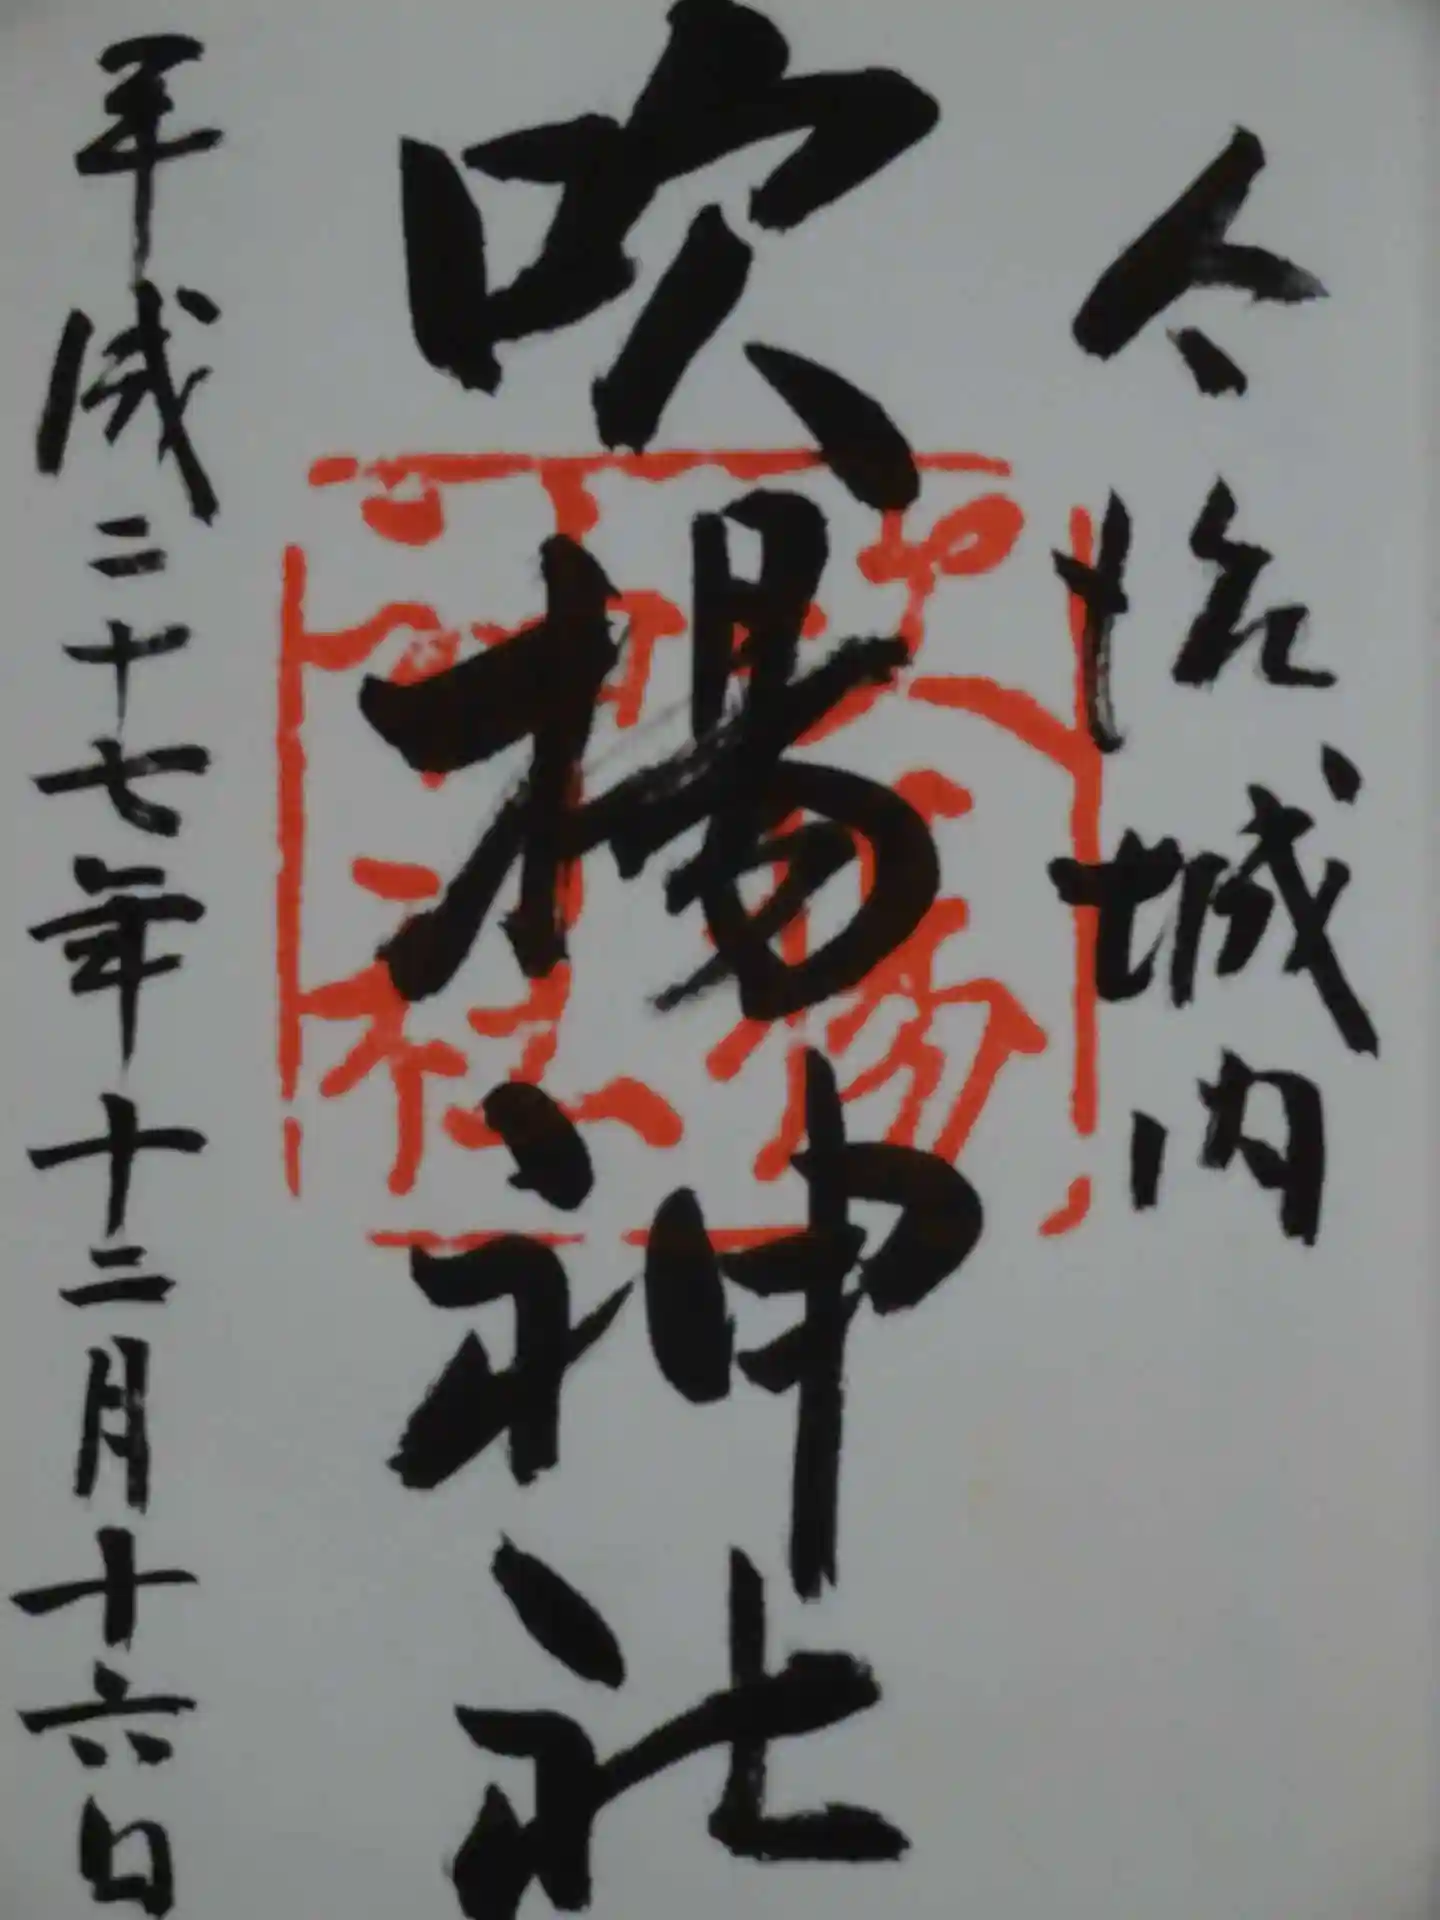 今治城内
吹揚神社
吹揚神社
平成二十七年十二月十六日